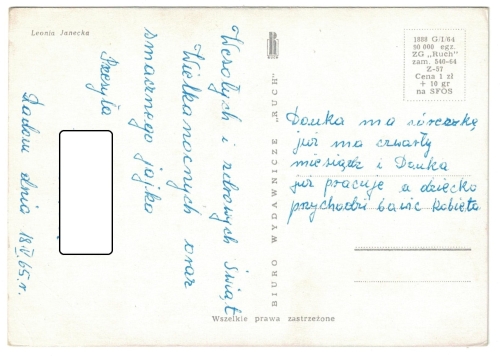 Leonia Janecka
Wesołych i zdrowych Świąt
Wielkanocnych oraz
smacznego jajka
Przesyła
Radom dnia 18 IV 65. r.
BIURO WYDAWNICZE „RUCH"
1888 G/1/64
90 000 egz.
ZG „Ruch"
zam. 540-64
Z-57
Cena 1 zł
+ 10 gr
na SFOS
Danka ma córeczkę
już ma czwarty
miesiądz i Danka
już pracuje a dziecko
przychodzi bawic kobieta
Wszelkie prawa zastrzeżone